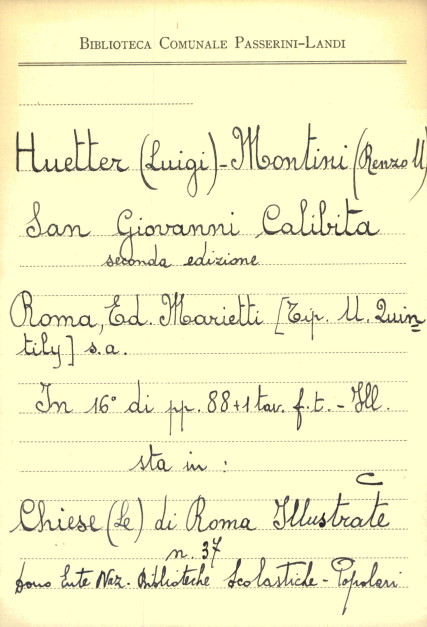 BIBLIOTECA COMUNALE PASSERINI-LANDI
Huetter (Luigi)-Montini (Renzo U)
San Giovanni Calibita
seconda edizione
Roma, Ed. Marietti [Tip. U. Quin=
tily] s.a.
In 16° di pp. 88+1 tav. f.t. - Ill.
sta in :
C
Chiese (Le) di Roma Illustrate
n. 37
Dono Ente Naz. Biblioteche Scolastiche - Popolari